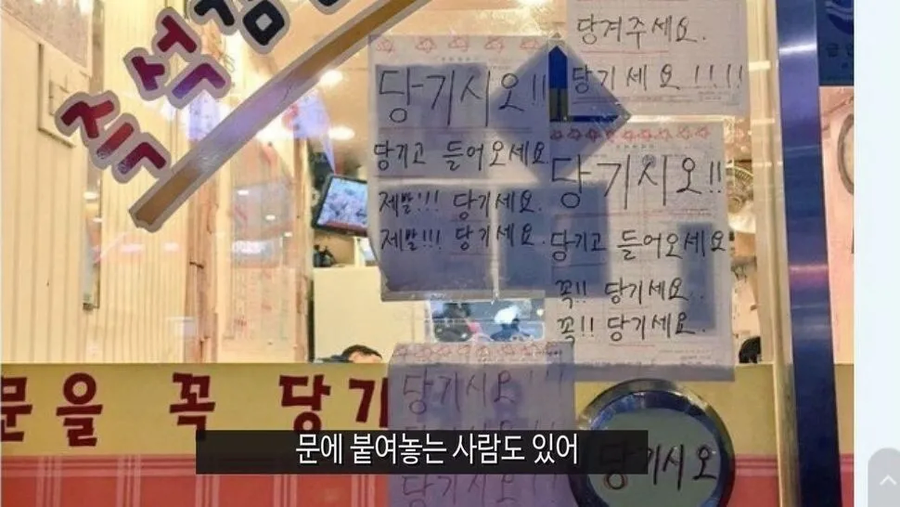 즉석
당겨주세요.
당기세요!!!!
당기시오!!
당기고 들어오세요
제발!!! 당기세요.
제발!!! 당기세요.
당기시오!!
당기고 들어오세요
꼭!! 당기세요.
꼭!! 당기세요.
당기시오!!
문을 꼭 당기
당기시오
당기시오
문에 붙여놓는 사람도 있어